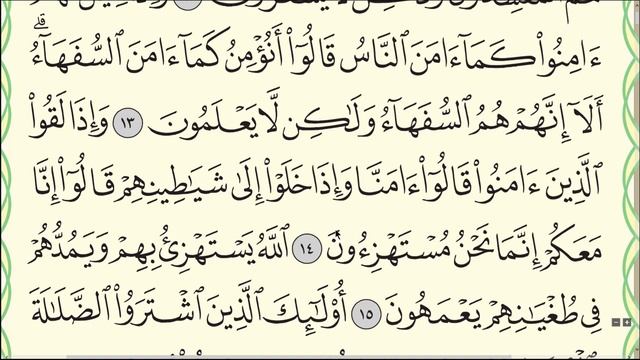 ءَامِنُوا۟ كَمَآ ءَامَنَ ٱلنَّاسُ قَالُوٓا۟ أَنُؤْمِنُ كَمَآ ءَامَنَ ٱلسُّفَهَآءُ ۗ
أَلَآ إِنَّهُمْ هُمُ ٱلسُّفَهَآءُ وَلَـٰكِن لَّا يَعْلَمُونَ ١٣ وَإِذَا لَقُوا۟
ٱلَّذِينَ ءَامَنُوا۟ قَالُوٓا۟ ءَامَنَّا وَإِذَا خَلَوْا۟ إِلَىٰ شَيَـٰطِينِهِمْ قَالُوٓا۟ إِنَّا
مَعَكُمْ إِنَّمَا نَحْنُ مُسْتَهْزِءُونَ ١٤ ٱللَّهُ يَسْتَهْزِئُ بِهِمْ وَيَمُدُّهُمْ
فِى طُغْيَـٰنِهِمْ يَعْمَهُونَ ١٥ أُو۟لَـٰٓئِكَ ٱلَّذِينَ ٱشْتَرَوُا۟ ٱلضَّلَـٰلَةَ